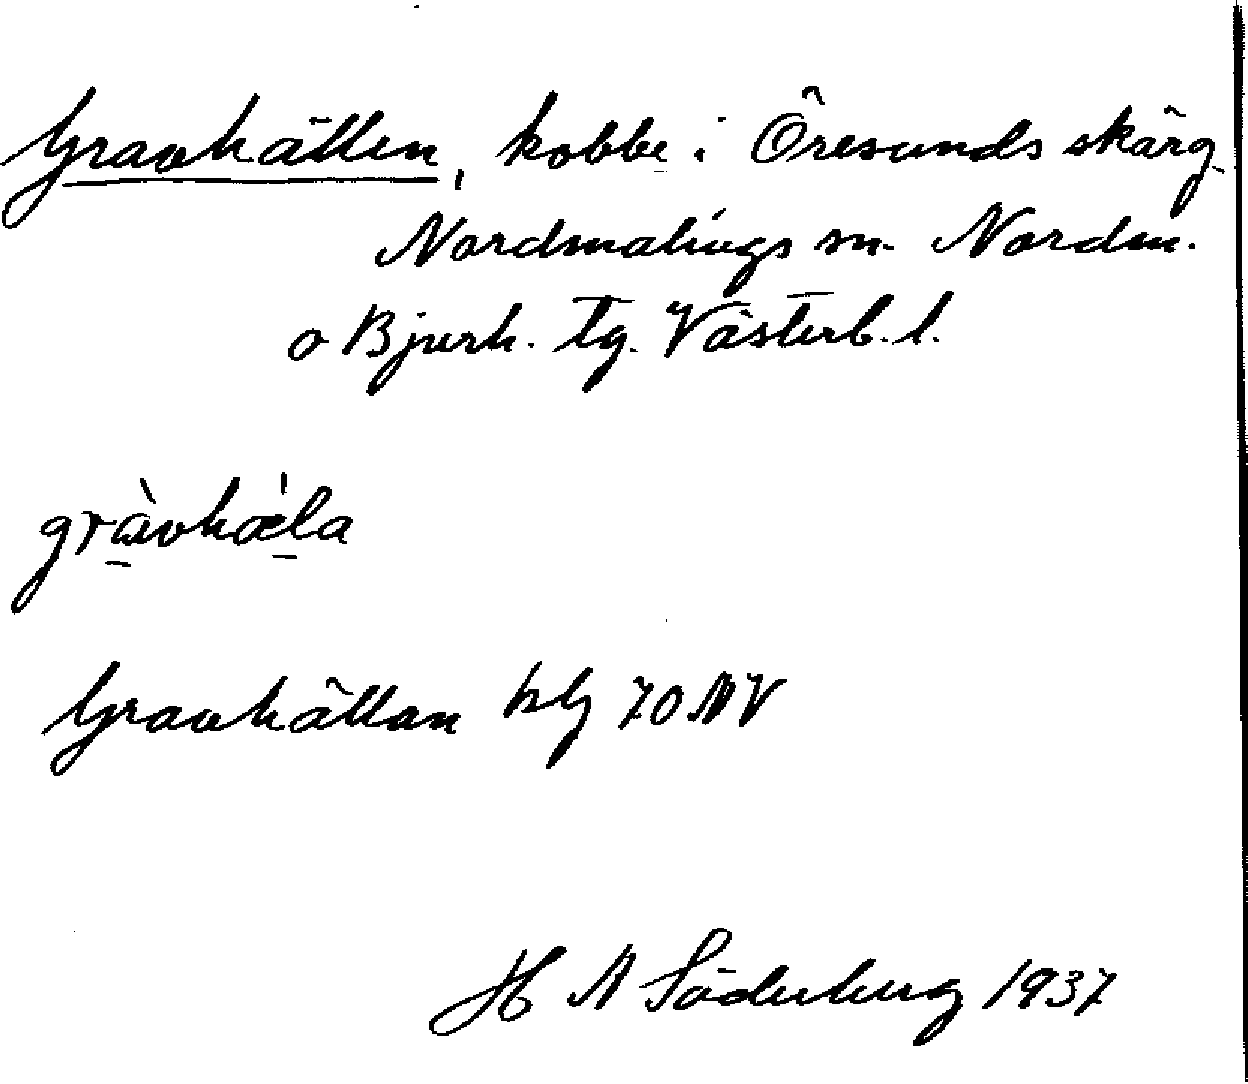 Gravhällen, kobbe i Öresunds skärg.
Nordmalings sn. Nordm.
o Bjurh. tg. Västerb. l.
gràvhæ̀la
Gravhällan blg 70 NV
H A Söderberg 1937